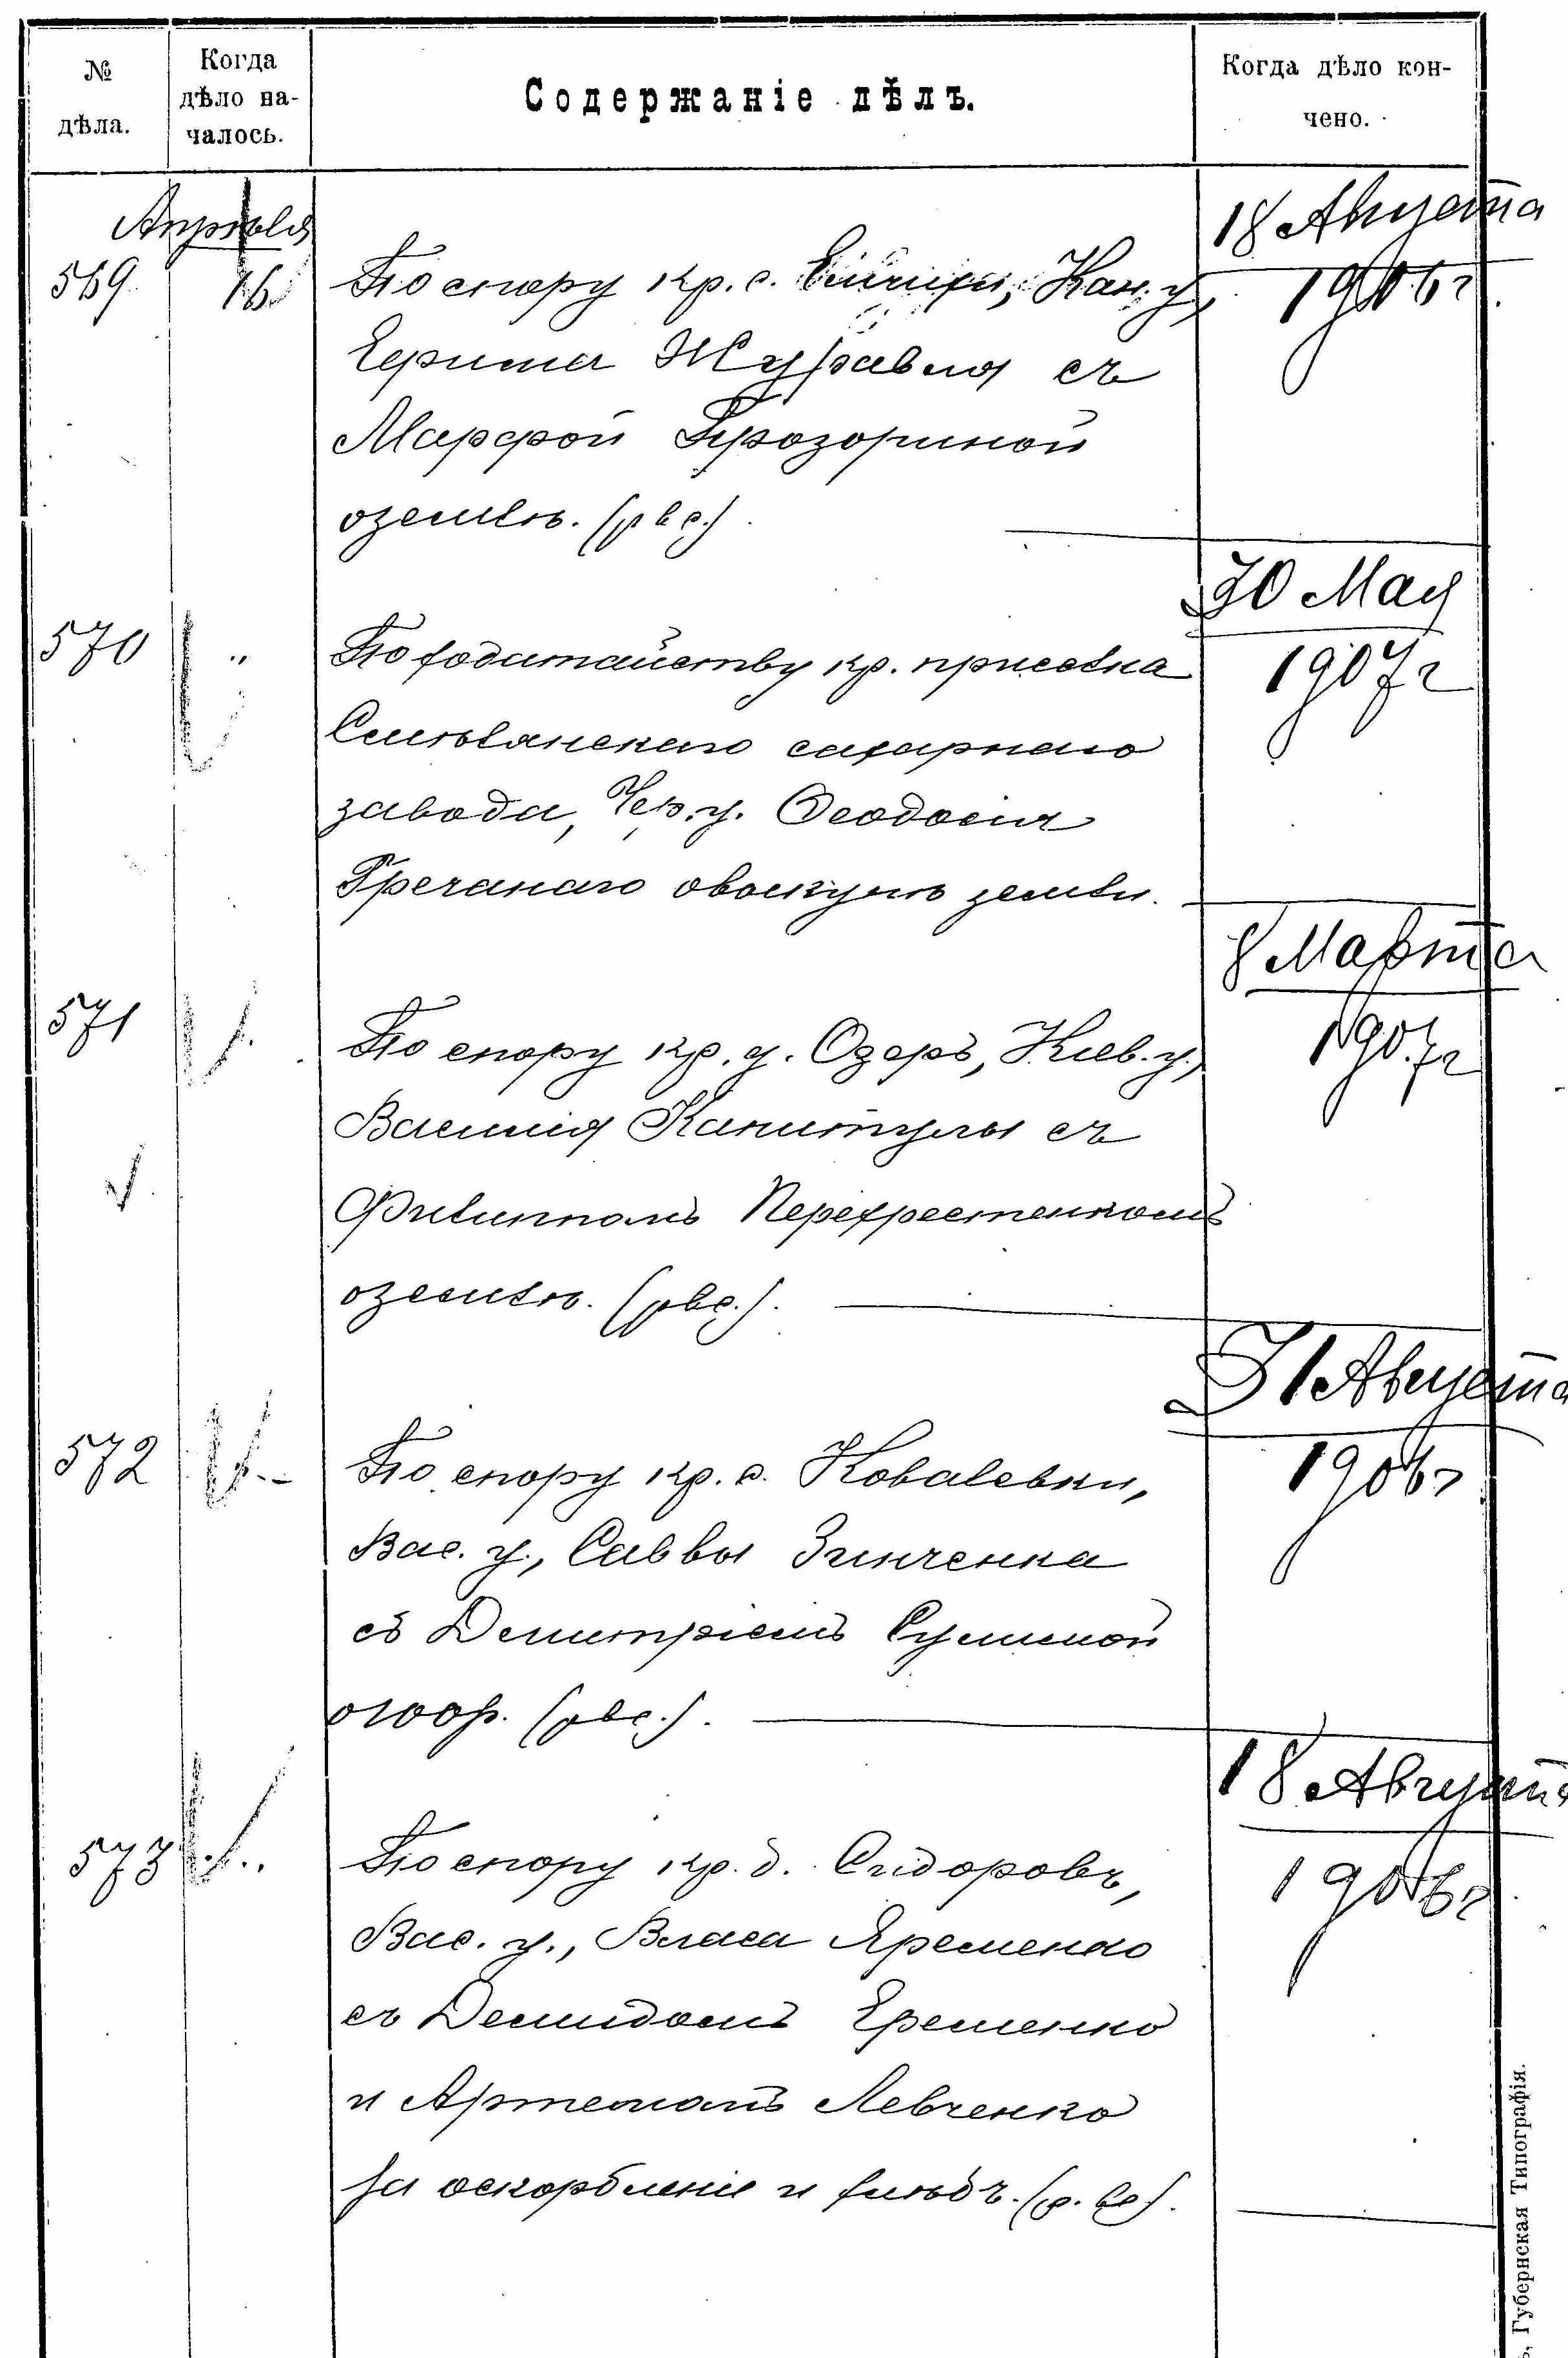 № дѣла.
Когда дѣло на-
чалось.
Содержаніе дѣлъ.
Когда дѣло кон-
чено.
Апрѣля
569 16 По спору кр. с. Кан. у.,
18 Августа
1906 г.
Ефима Журавля съ
Марфой Прозориной
о землѣ. (рвс.)
30 Мая
1907 г
570 " По ходатайству кр. приселка
Смѣлянскаго сахарнаго
завода, Чер. у. Ѳеодосія
Гречанаго о выкупѣ земли.
8 Марта
1907 г
571 По спору кр. д. Озеръ, Кіев. у.,
Василія Капитулы съ
Филиппомъ Перехрестенкомъ
о землѣ. (рвс.).
31 Августа
1906 г
572 По спору кр. с. Ковалевки,
Вас. у., Саввы Зинченка
съ Димитріемъ Сулимой
о (рвс.).
18 Августа
1906 г.
573 По спору кр. д. Сидоровъ,
Вас. у., Власа Яременко
съ Демидомъ Еременко
и Артемомъ Левченко
за оскорбленіе и хлѣбъ. (р. вс).
Губернская Типографія.